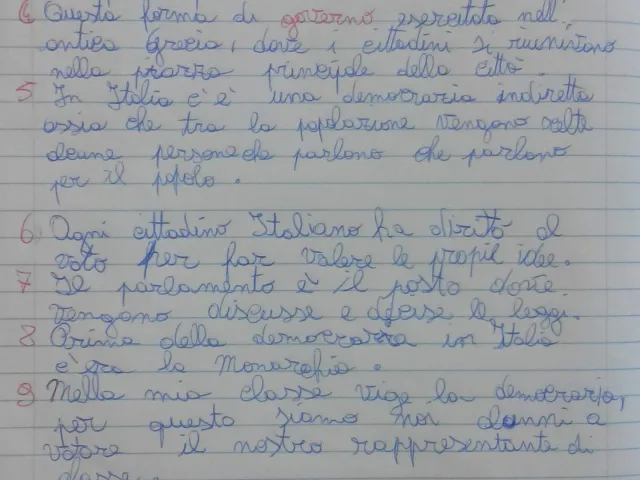 4 Questa forma di governo esercitata nell'
antica Grecia, dove i cittadini si riunivano
nella piazza principale della città.
5 In Italia c'è una democrazia indiretta
ossia che tra la popolazione vengono scelte
alcune persone che parlano che parlano
per il popolo.
6 Ogni cittadino Italiano ha diritto al
voto per far valere le propie idee.
7 Il parlamento è il posto dove
vengono discusse e decise le leggi.
8 Prima della democrazia in Italia
c'era la Monarchia.
9 Nella mia classe vige la democrazia,
per questo siamo noi alunni a
votare il nostro rappresentante di
classe.